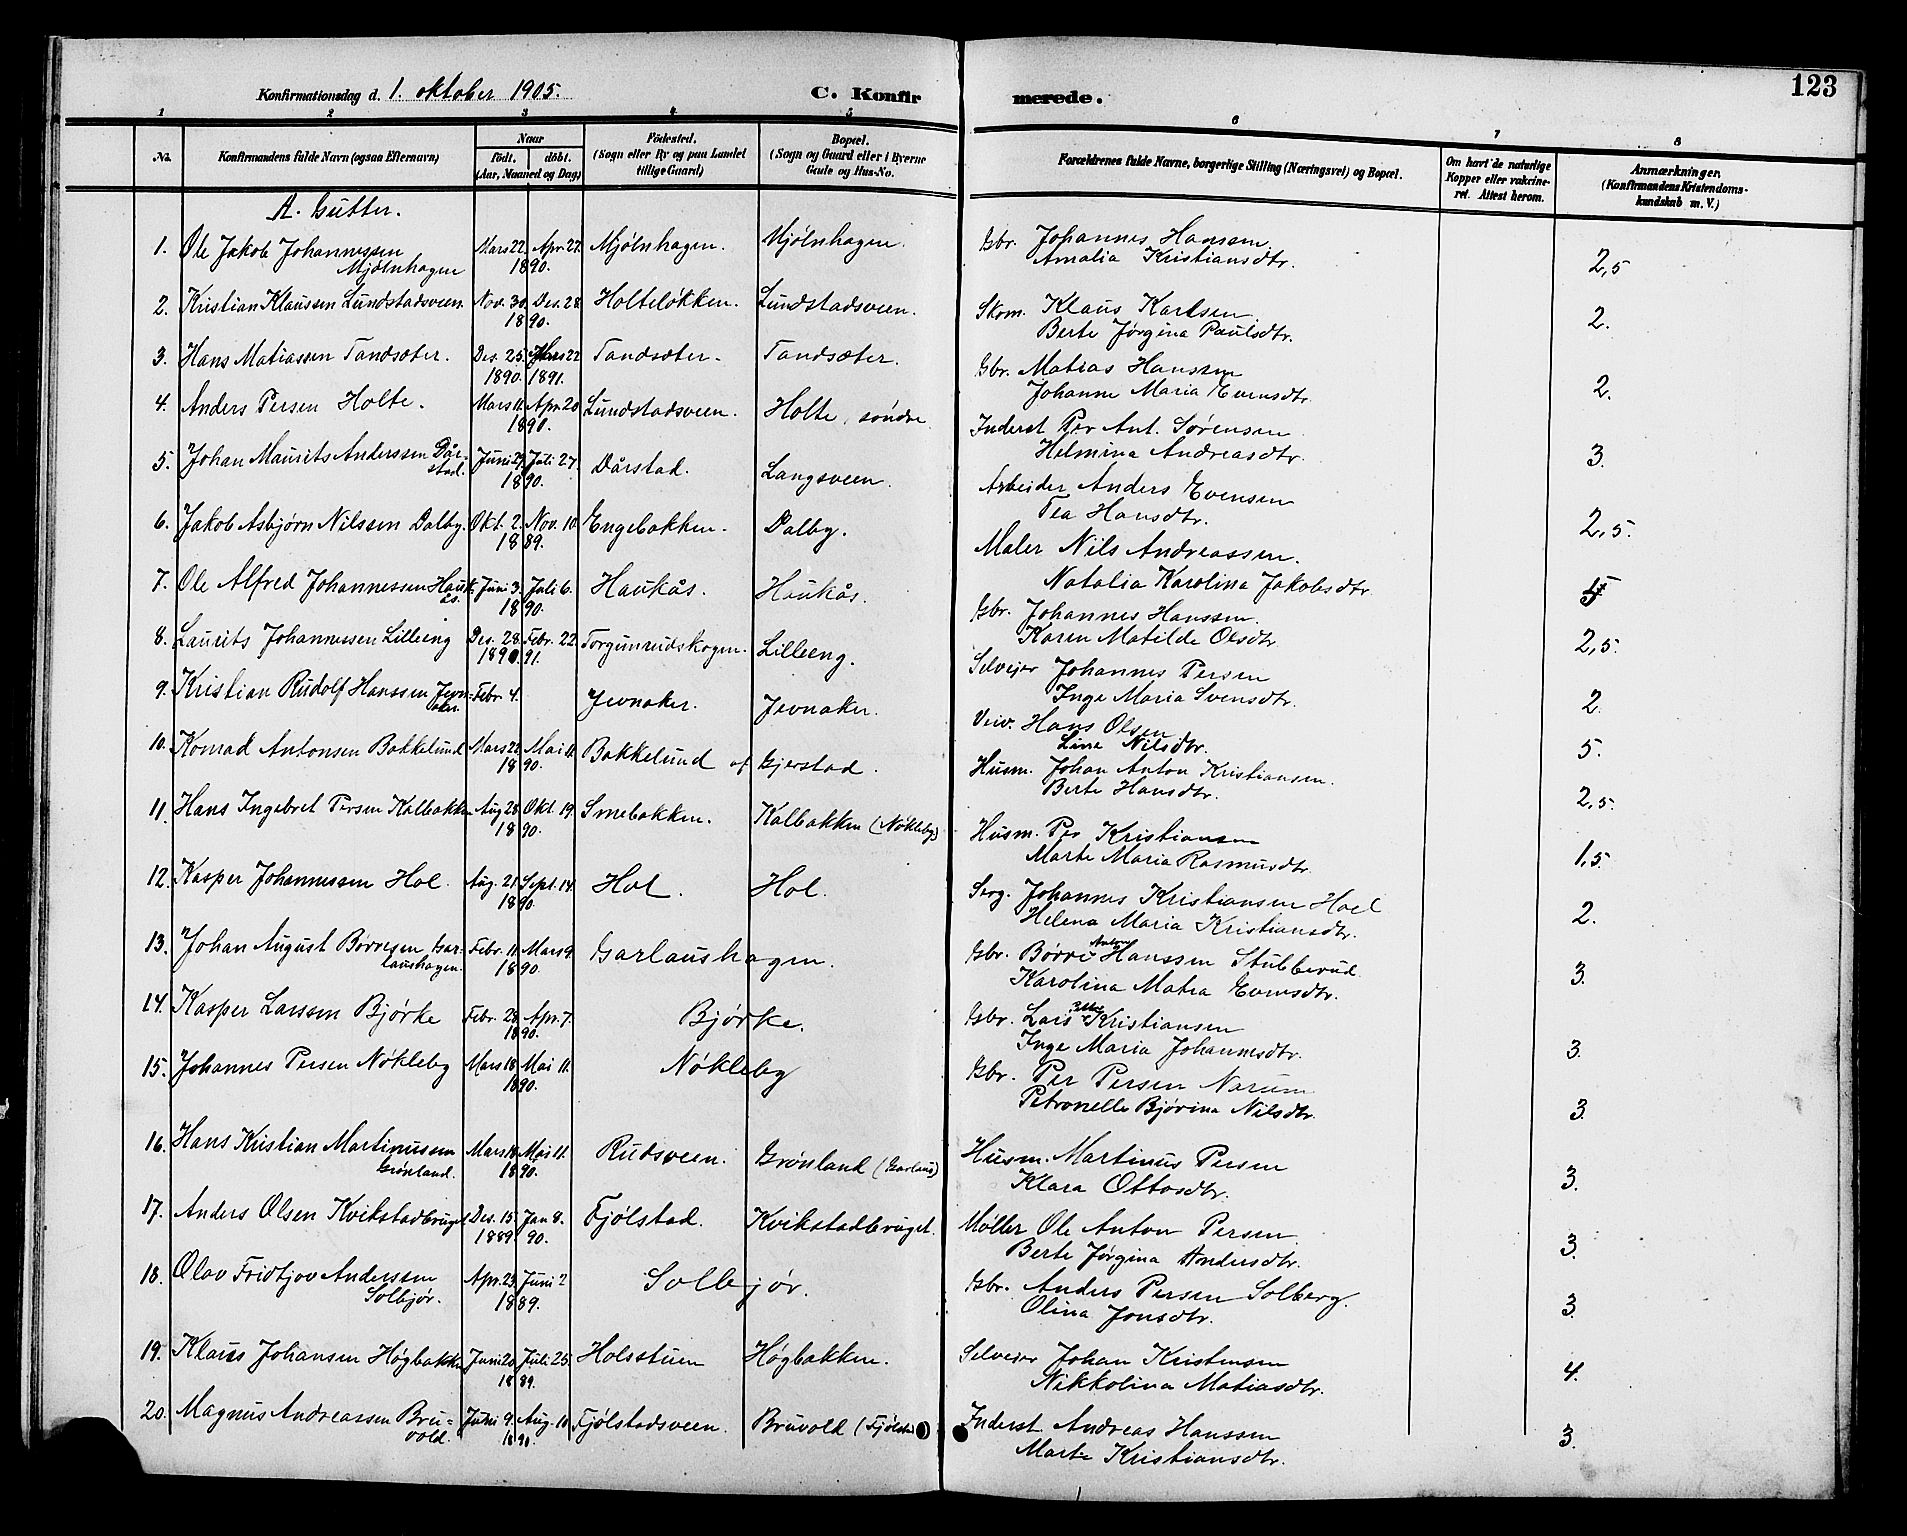 123
Konfirmationsdag d. 1. oktober 1905. C. Konfirmerede.
1 2 3 4 5 6 7 8
No. Konfirmandens fulde Navn (ogsaa Efternavn) Naar født. døbt. (Aar, Maaned og Dag) Fødested. (Sogn eller By og paa Landet tillige Gaard) Bopæl. (Sogn og Gaard eller i Byerne Gade og Hus-No. Forældrenes fulde Navne, borgerlige Stilling (Næringsvei) og Bopæl. Om havt de naturlige Kopper eller vaccineret. Attest herom. Anmærkninger. (Konfirmandens Kristendomskundskab m. V.)
A. Gutter.
1. Ole Jakob Johannessen Mjølnhagen Mars 22. Apr. 27. 1890. Mjølnhagen. Mjølnhagen. Gbr. Johannes Hansen.
Amalia Kristiansdtr. 2,5
2. Kristian Klaussen Lundstadsveen Nov. 30. Des. 28 1890. Holteløkken. Lundstadsveen. Skom. Klaus Karlsen.
Berte Jørgina Paulsdtr. 2.
3. Hans Matiassen Tandsæter. Des. 25. 1890. Mars 22 1891. Tandsæter. Tandsæter. Gbr. Matias Hanssen
Johanne Maria Evensdtr. 2.
4. Anders Persen Holte. Mars 11. Apr. 20 1890. Lundstadsveen. Holte, søndre Inderst Per Ant. Sørensen
Helmina Andreasdtr. 3.
5. Johan Maurits Anderssen Dårstad. Juni 29. Juli 27. 1890. Dårstad. Langsveen. Arbeider Anders Evensen
Tea Hansdtr. 2,5.
6. Jakob Asbjørn Nilssen Dalby. Okt. 2. Nov. 10. 1889. Engebakken. Dalby. Maler Nils Andreassen.
Natalia Karolina Jakobsdtr.
7. Ole Alfred Johannessen Haukås. Juni 3. Juli 6. 1890. Haukås. Haukås. Gbr. Johannes Hanssen.
Karen Matilde Olsdtr 2,5.
8. Laurits Johannessen Lilleeng Des. 28. 1890. Febr. 22. 91. Torgunrudskogen. Lilleeng. Selveier Johannes Persen
Inge Maria Svensdtr. 2.
9. Kristian Rudolf Hanssen Jevnaker. Febr. 4. Jevnaker. Jevnaker. Veiv. Hans Olsen
Line Nilsdtr. 5.
10. Konrad Antonsen Bakkelund Mars 22. Mai 11. 1890. Bakkelund af Gjerstad. Husm. Johan Anton Kristiansen.
Berte Hansdtr. 2,5.
11. Hans Ingebret Persen Kalbakken Aug. 28. Okt. 19. 1890. Smebakken. Kalbakken (Nøkleby) Husm. Per Kristiansen
Marte Maria Rasmusdtr. 1,5
12. Kasper Johannessen Hol. Aug. 21. Sept. 14 1890. Hol. Hol. Serg. Johannes Kristiansen Hoel
Helena Maria Kristiansdtr. 2.
13. Johan August Børresen Garlaushagen. Febr. 11. Mars 9. 1890. Garlaushagen. Gbr. Børre Anton Hanssen Stubberud
Karolina Matea Evensdtr. 3.
14. Kasper Larssen Bjørke Febr. 28 Apr. 7. 1890. Bjørke. Gbr. Lars Kristiansen
Inge Maria Johannesdtr. 3.
15. Johannes Persen Nøkleby Mars 18 Mai 11. 1890. Nøkleby Gbr. Per Persen Narum
Petronelle Bjørina Nilsdtr. 3.
16. Hans Kristian Martinussen Grønland. Mars 14 Mai 11. 1890. Rudsveen. Grønland (Garlaus) Husm. Martinus Persen
Klara Ottosdtr. 3.
17. Anders Olsen Kvikstadbruget Des. 15. 1889. Jan 8. 90. Fjølstad. Kvikstadbruget. Møller Ole Anton Persen
Berte Jørgina Andersdtr. 3.
18. Olav Fridtjov Anderssen Solbjør. Apr. 23. Juni 2 1889. Solbjør. Gbr. Anders Persen Solberg.
Olina Jonsdtr. 3.
19. Klaus Johansen Høgbakken Juni 20 Juli 25. 1889. Holsstuen Høgbakken. Selveier Johan Kristensen
Nikkolina Matiasdtr. 4.
20. Magnus Andreassen Bruvold. Juni 9. Aug. 10 1890. Fjølstadsveen. Bruvold (Fjølstad) Inderst Andreas Hanssen
Marte Kristiansdtr. 3.